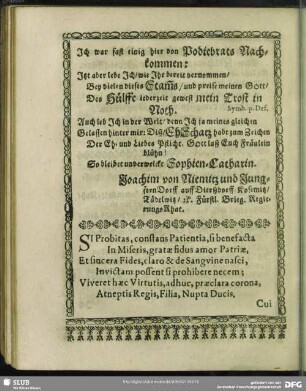 Ich war fast einig hier von Podiebrats Nach-
kommen:
Itzt aber lebe Ich / wie Ihr bereit vernommen /
Bey vielen dieses Stams / und preise meinen Gott /
Des Hülffe iederzeit gewest mein Trost in
Noth. Symb. p. Def.
Auch leb Ich in der Welt / denn Ich ja meines gleichen
Gelassen hinter mir: Diß / EhSchatz habt zum Zeichen
Der Eh- und Liebes Pflicht. Gott laß Euch Fräulein
blühn!
So bleibet unverwelckt Sophien-Catharin.
Joachim von Niemitz und Jung-
fern Dorff auff Dierßdorff Kosemitz /
Tadelwitz / ꝛc. Fürstl. Brieg. Regie-
rungs Rhat.
SI Probitas, constans Patientia, si benefacta
In Miseris, gratæ fidus amor Patriæ,
Et sincera Fides, claro & de Sangvine nasci,
Invictam possent si prohibere necem;
Viveret hæc Virtutis, adhuc, præclara corona,
Atneptis Regis, Filia, Nupta Ducis,
Cui
SLUB
Wir führen Wissen.
DFG